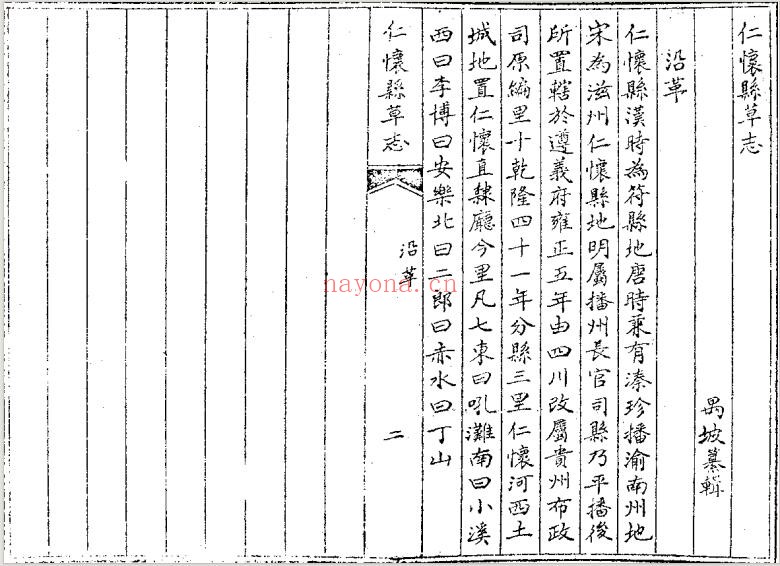 仁懷縣草志
禺坡纂輯
沿革
仁懷縣漢時為符縣地唐時兼有溱珍播渝南州地
宋為滋州仁懷縣地明屬播州長官司縣乃平播後
所置轄於遵義府雍正五年由四川改屬貴州布政
司原編里十乾隆四十一年分縣三里仁懷河西土
城地置仁懷直隸廳今里凡七東曰吼灘南曰小溪
西曰李博曰安樂北曰二郎曰赤水曰丁山
仁懷縣草志
沿革
二
nayona.cn